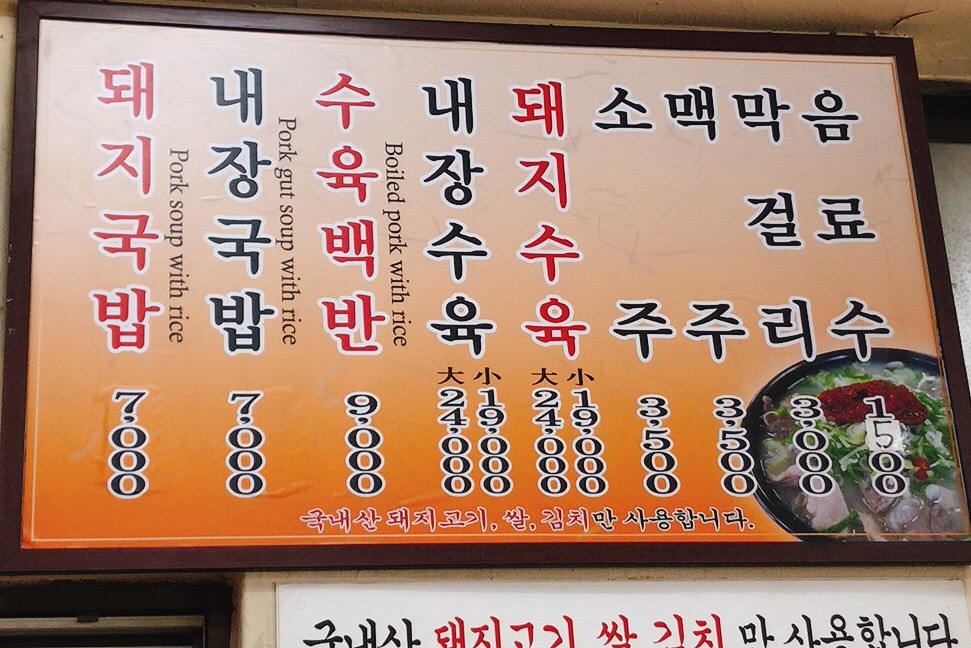 돼지국밥
Pork soup with rice
7,000
내장국밥
Pork gut soup with rice
7,000
수육백반
Boiled pork with rice
9,000
내장수육
大 24,000
小 19,000
돼지수육
大 24,000
小 19,000
소주
3,500
맥주
3,500
막걸리
3,000
음료수
1,500
국내산 돼지고기, 쌀, 김치만 사용합니다.
국내산 돼지고기 쌀 김치 만 사용합니다